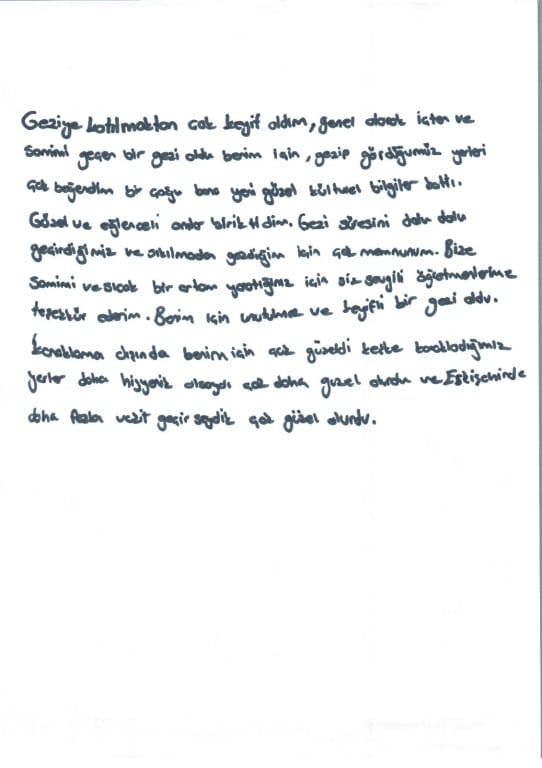 Geziye katılmaktan çok keyif aldım, genel olarak içten ve
Samimi geçen bir gezi oldu benim için, gezip gördüğümüz yerleri
çok beğendim bir çoğu bana yeni güzel kültürel bilgiler kattı.
Güzel ve eğlenceli anılar biriktirdim. Gezi süresini dolu dolu
geçirdiğimiz ve sıkılmadan gezdiğim için çok memnunum. Bize
Samimi ve sıcak bir ortam yarattığınız için siz sevgili öğretmenlerime
teşekkür ederim. Benim için unutulmaz ve keyifli bir gezi oldu.
konaklama dışında benim için çok güzeldi keşke konakladığımız
yerler daha hijyenik olsaydı çok daha güzel olurdu ve Eskişehirde
daha fazla vakit geçirseydik çok güzel olurdu.